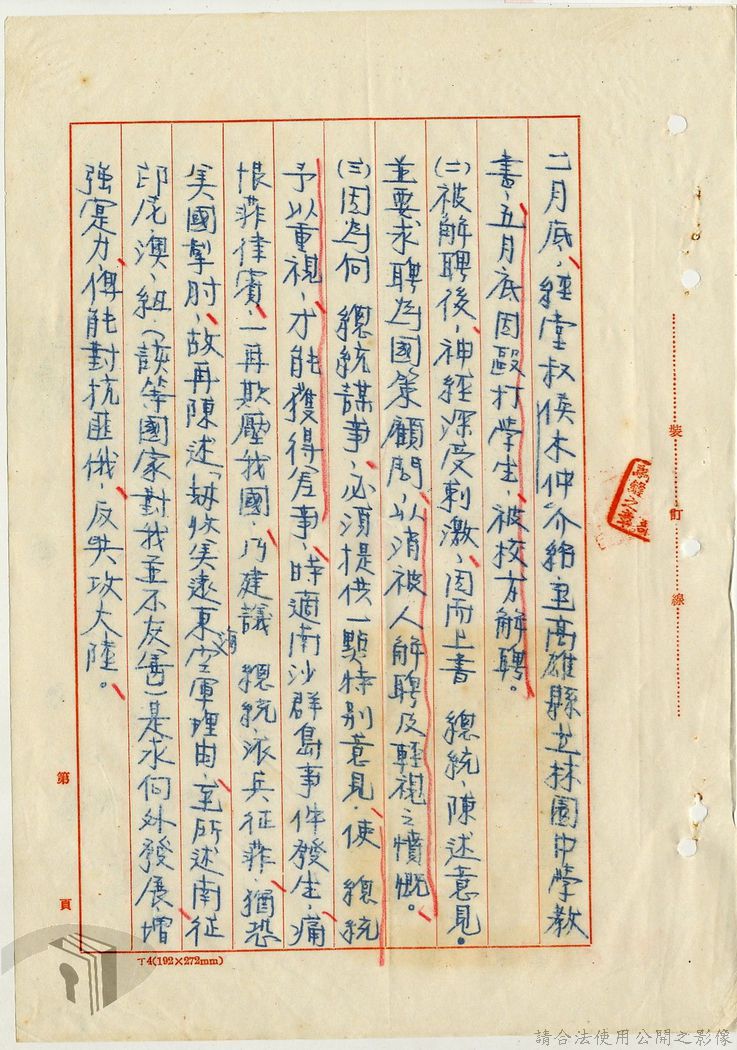 二月底、經堂叔侯木仲介紹至高雄縣立林園中學教
書、五月底因毆打學生、被校方解聘。
(二)被解聘後、神經深受刺激、因而上書 總統、陳述意見。
並要求聘為國策顧問、以消被人解聘及輕視之憤慨。
(三)因為向 總統謀事、必須提供一點特別意見、使 總統
予以重視、才能獲得差事、時適南沙群島事件發生、痛
恨菲律賓、一再欺壓我國、乃建議 總統、派兵征菲、猶恐
美國掣肘、故再陳述「劫收美遠東空海軍理由、至所述南征
印尼、澳、紐(該等國家對我並不友善)是求向外發展、增
強實力、俾能對抗匪俄、反共攻大陸。
裝 訂 線
第 頁
丁4(192×272mm)
請合法使用公開之影像